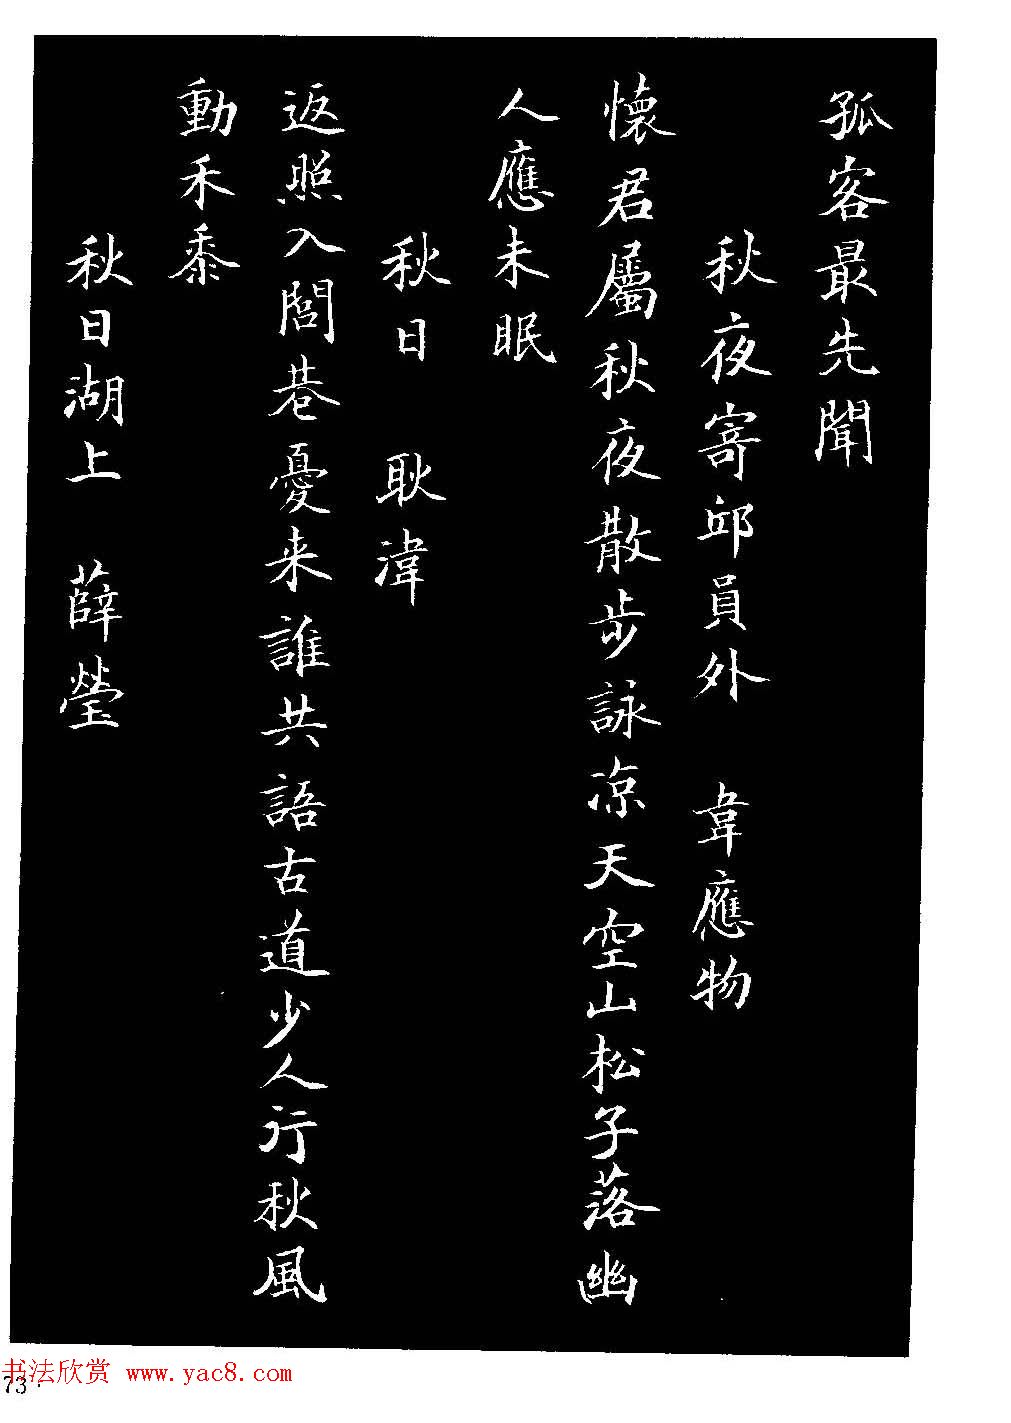 孤客最先聞
秋夜寄邱員外　韋應物
懷君屬秋夜散步詠凉天空山松子落幽
人應未眠
秋日　耿湋
返照入閭巷憂来誰共語古道少人行秋風
動禾黍
秋日湖上　薛瑩
书法欣赏 www.yac8.com
73